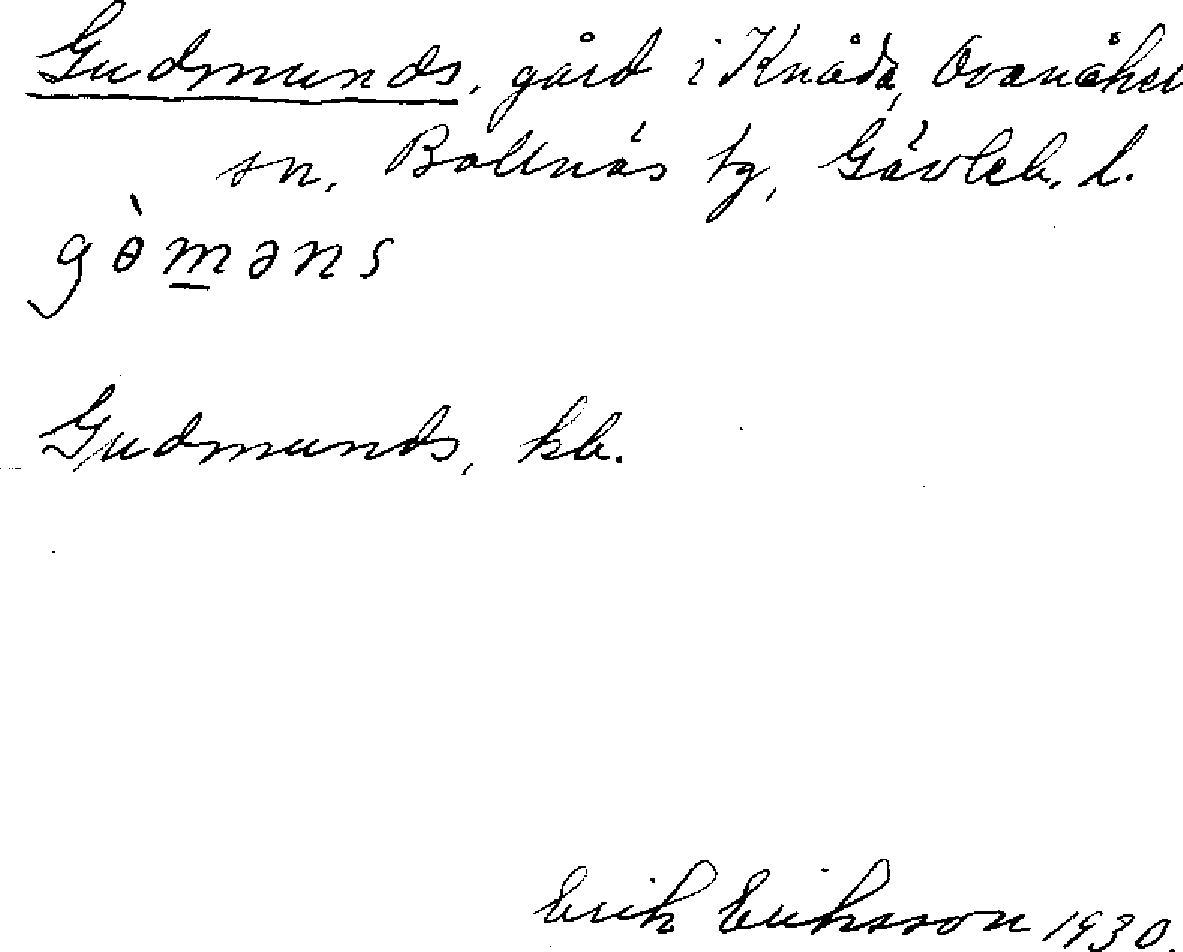 Gudmunds, gård i Knåda, Ovanåker
sn, Bollnäs tg, Gävleb. l.
gɵ̀m̲əns
Gudmunds, kb.
Erik Eriksson 1930.